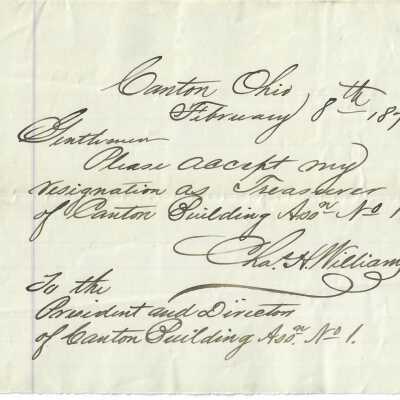 Canton Ohio
February 8th 187
Gentlemen
Please accept my
resignation as Treasurer
of Canton Building Asson No 1
Chas. H. William
To the
President and Director
of Canton Building Asson. No 1.